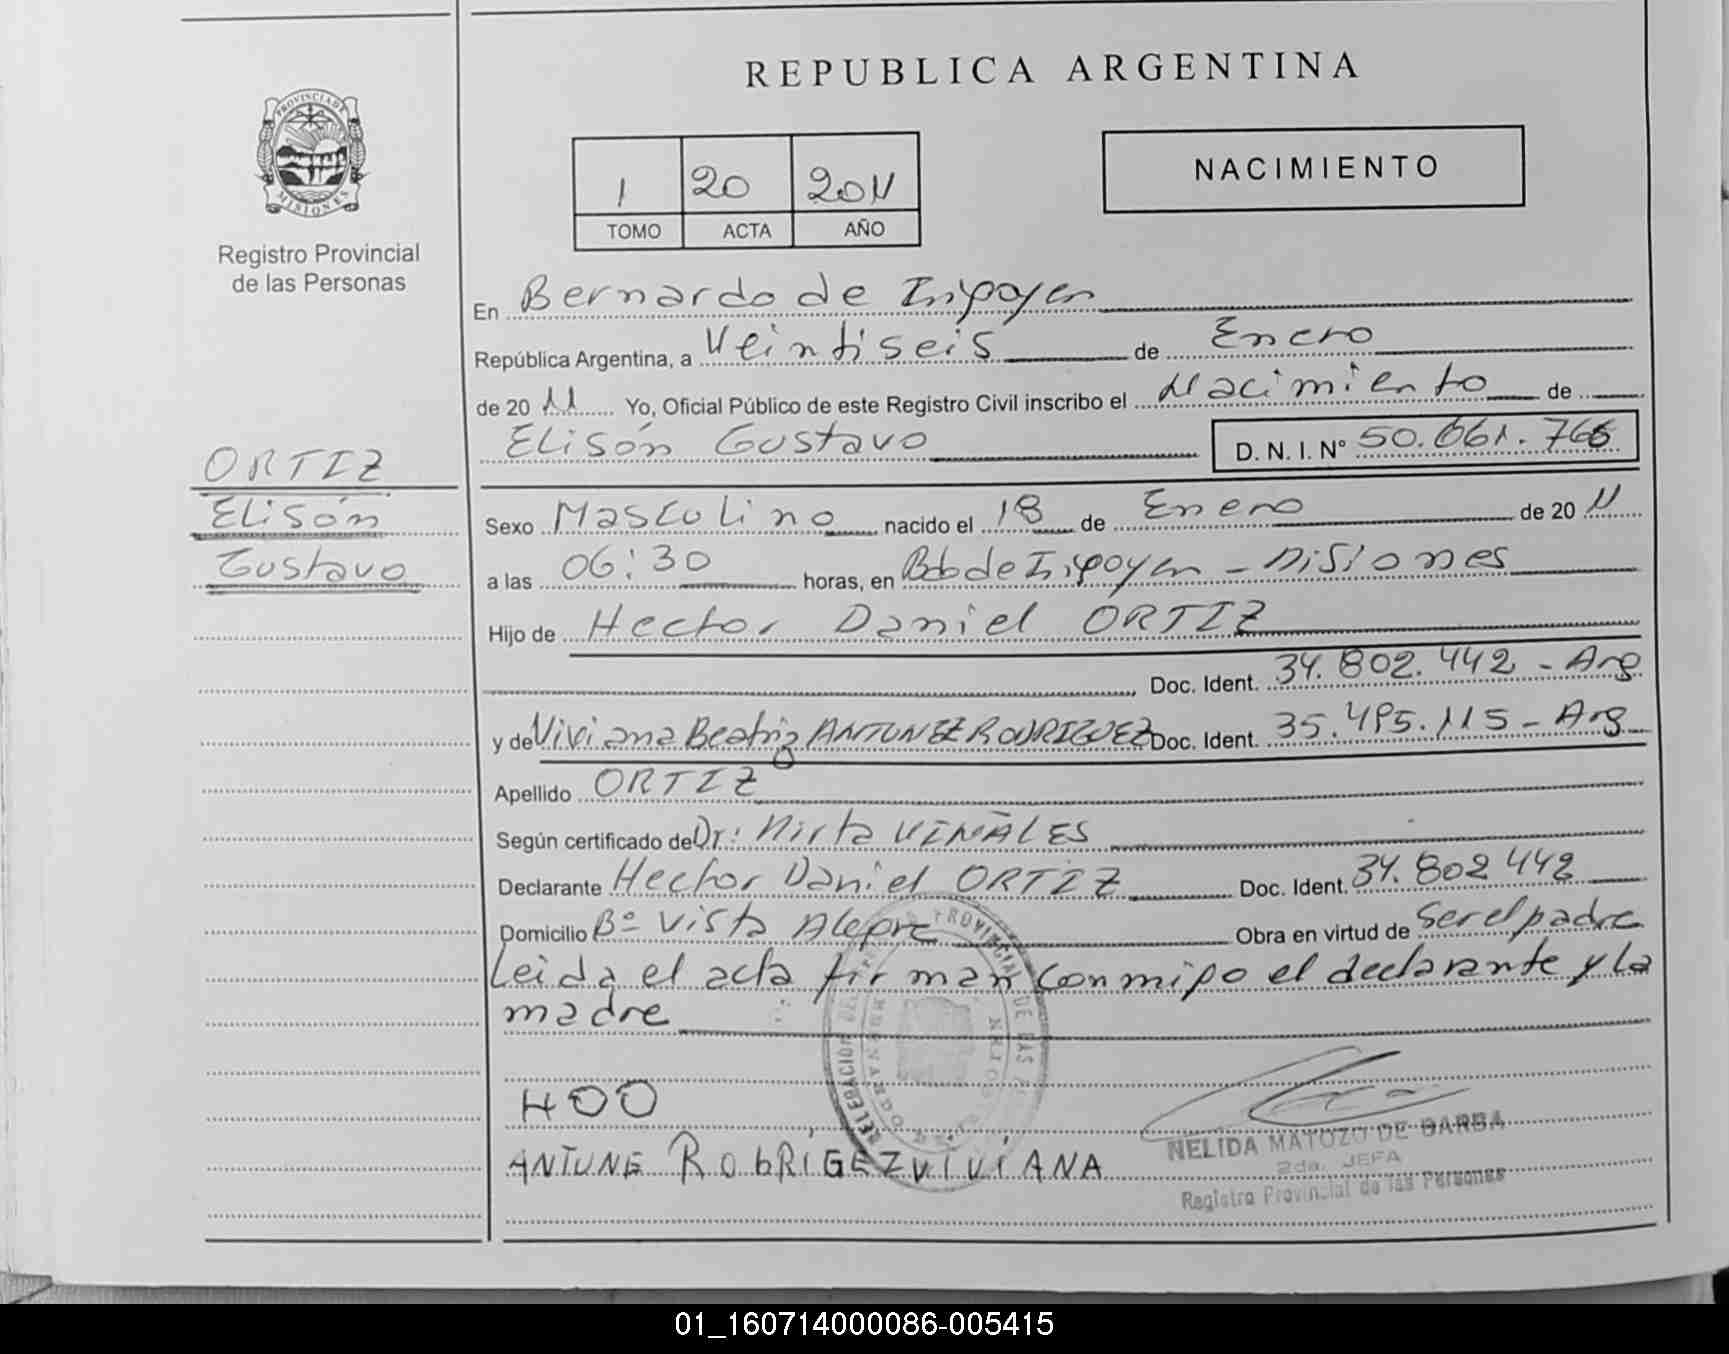 REPUBLICA ARGENTINA
PROVINCIA DE
MISIONES
Registro Provincial
de las Personas
1 20 2011
TOMO ACTA AÑO
NACIMIENTO
En Bernardo de Irigoyen
República Argentina, a Veintiseis de Enero
de 20 11 Yo, Oficial Público de este Registro Civil inscribo el Nacimiento de
Elisón Gustavo D. N. I. N° 50.661.766
ORTIZ
Elisón
Gustavo
Sexo Masculino nacido el 18 de Enero de 20 11
a las 06:30 horas, en Bdo de Irigoyen - Misiones
Hijo de Hector Daniel ORTIZ
Doc. Ident. 34.802.442 - Arg
y de Viviana Beatriz ANTUNEZ RODRIGUEZ Doc. Ident. 35.495.115 - Arg
Apellido ORTIZ
Según certificado de Dr: Mirta VIÑALES
Declarante Hector Daniel ORTIZ Doc. Ident. 34.802442
Domicilio B° Vista Alegre Obra en virtud de Ser el padre
Leida el acta firman conmigo el declarante y la
madre
HOO
ANTUNE ROBRÍGEZ VIVIANA
NELIDA MATOZO DE BARBA
2da. JEFA
Registro Provincial de las Personas
01_160714000086-005415